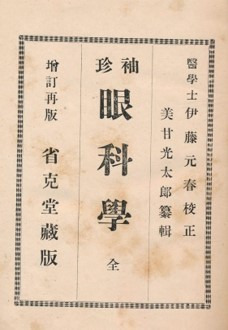 醫學士伊藤元春校正
美甘光太郎纂輯
袖珍
眼科學 全
增訂再版 省克堂藏版